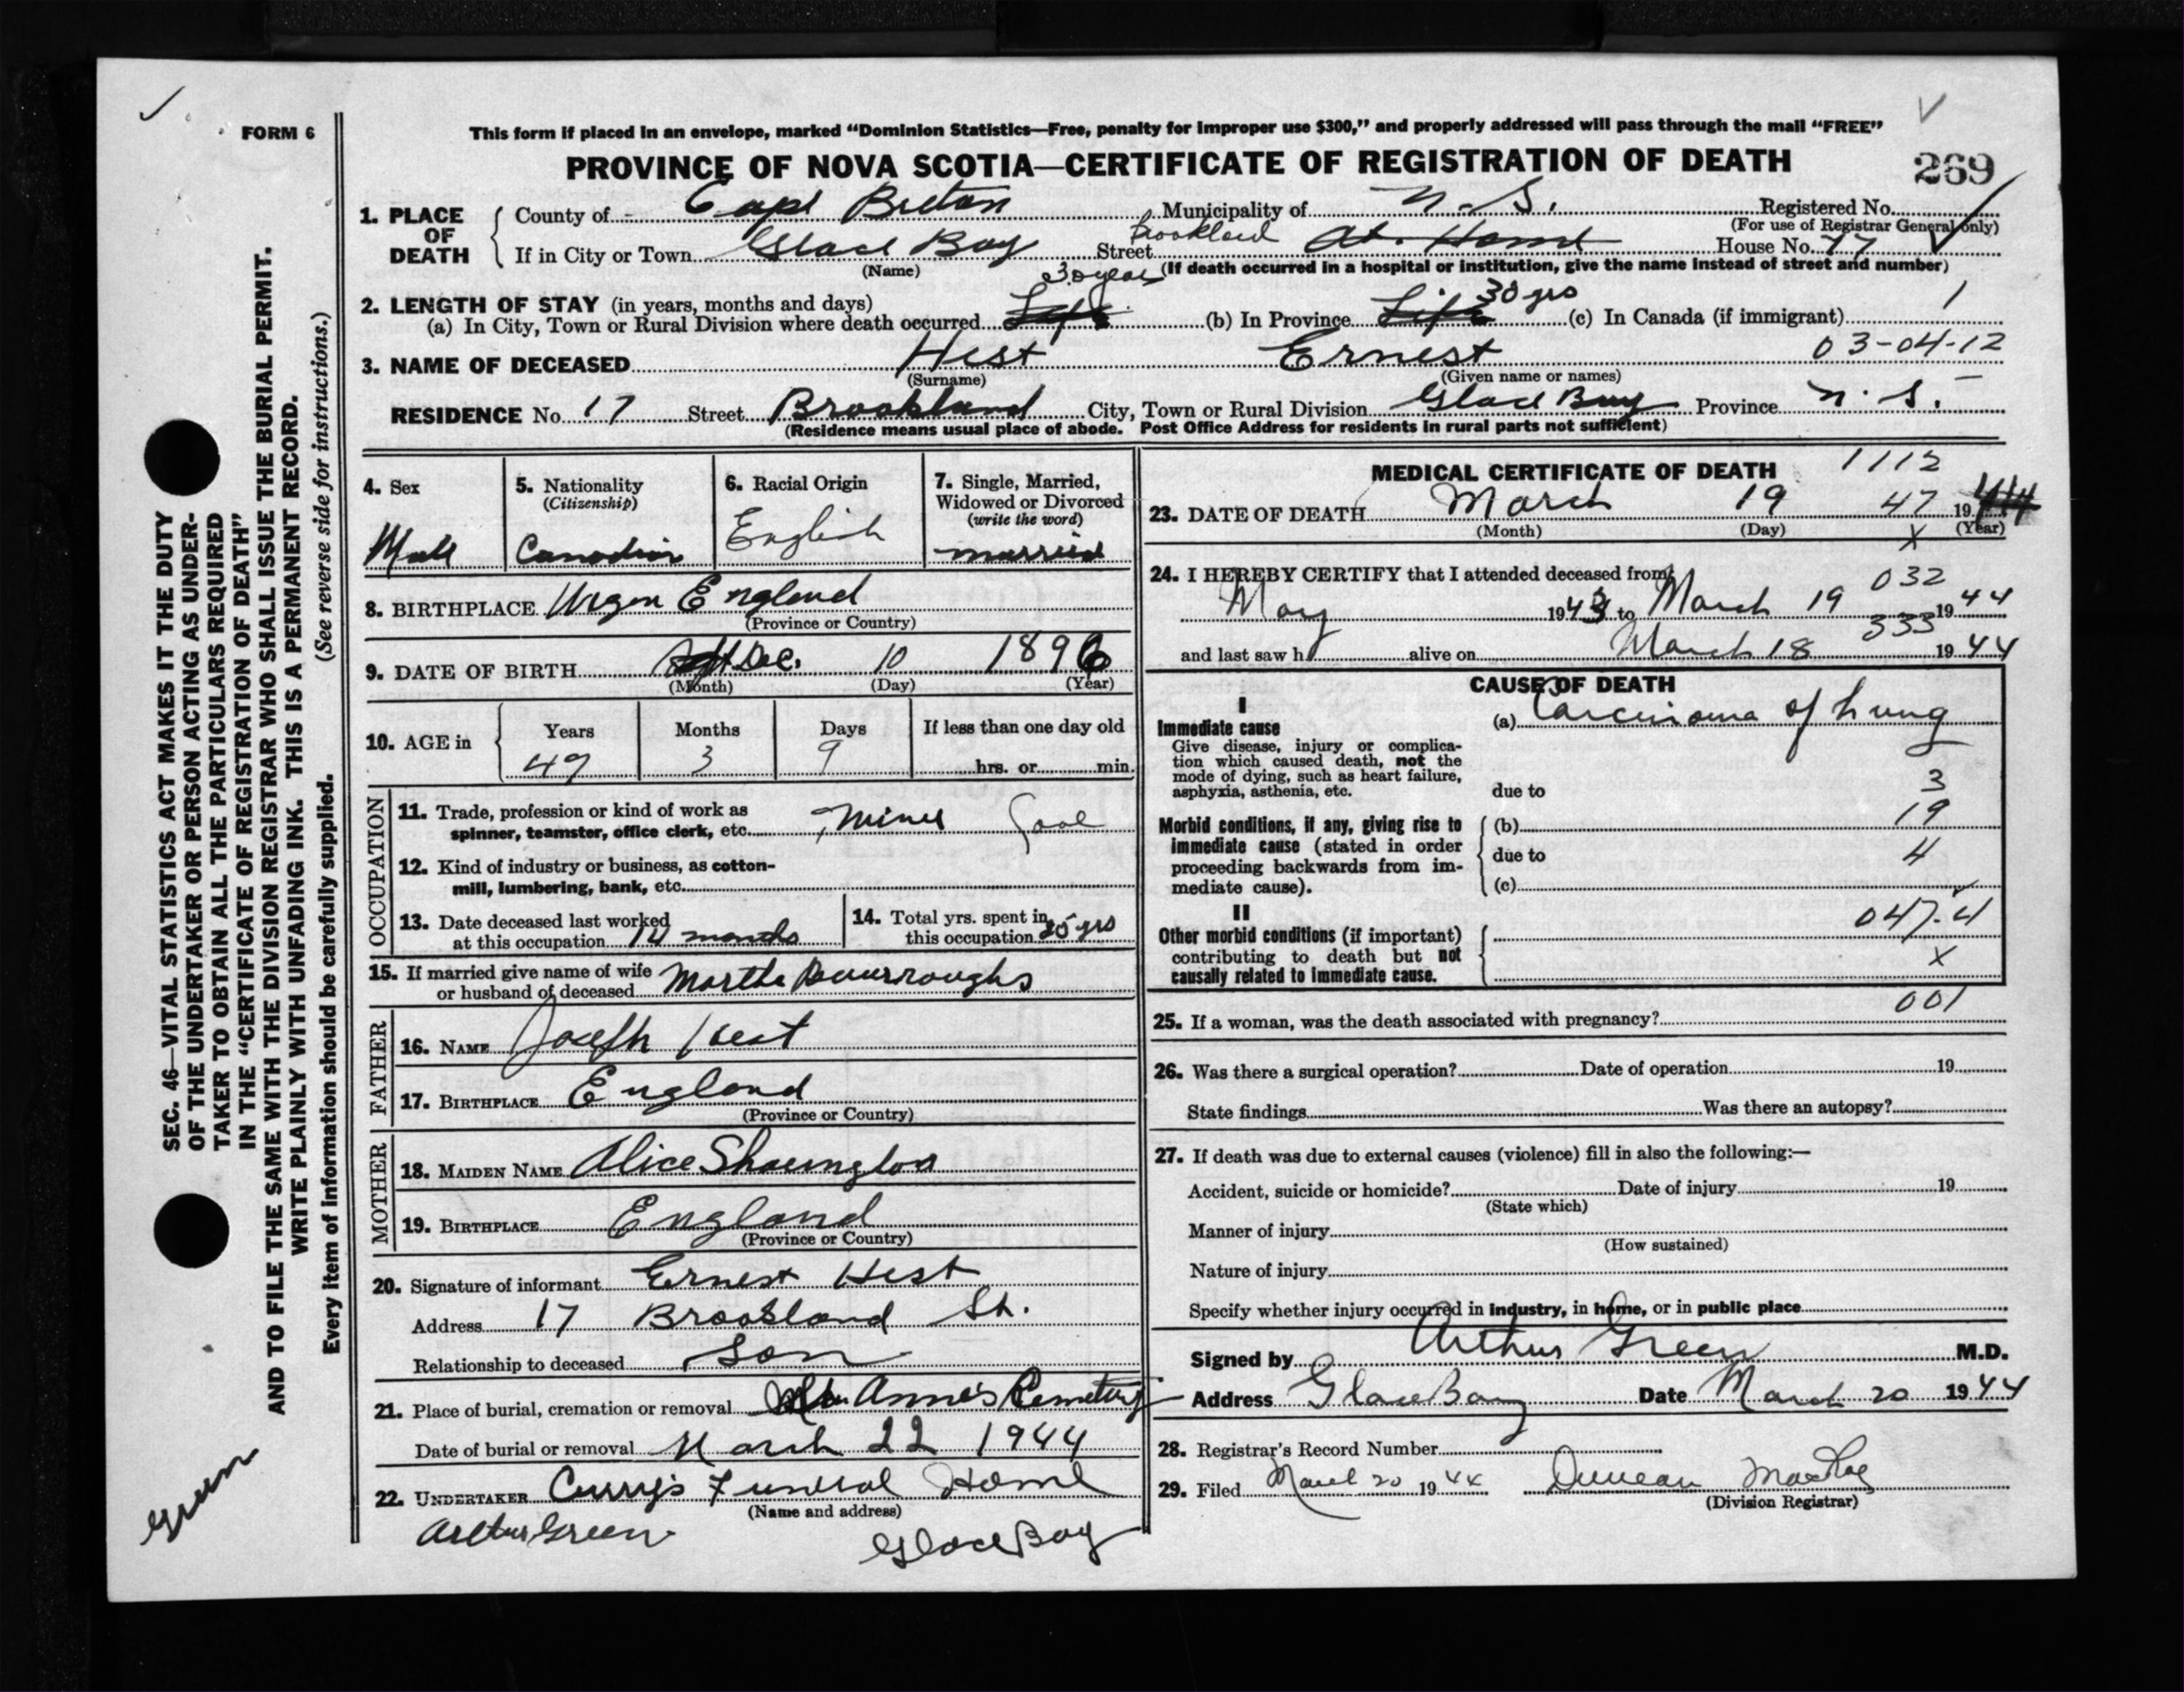 FORM 6
This form if placed in an envelope, marked "Dominion Statistics—Free, penalty for improper use $300," and properly addressed will pass through the mail "FREE"
PROVINCE OF NOVA SCOTIA—CERTIFICATE OF REGISTRATION OF DEATH
269
1. PLACE OF DEATH
County of Cape Breton Municipality of N. S. Registered No.
(For use of Registrar General only)
If in City or Town Glace Bay Street Brookland At Home House No. 17
(Name) (If death occurred in a hospital or institution, give the name instead of street and number)
2. LENGTH OF STAY (in years, months and days)
(a) In City, Town or Rural Division where death occurred Life 30 years (b) In Province Life 30 yrs (c) In Canada (if immigrant)
3. NAME OF DECEASED Hest Ernest 03-04-12
(Surname) (Given name or names)
RESIDENCE No. 17 Street Brookland City, Town or Rural Division Glace Bay Province N. S.
(Residence means usual place of abode. Post Office Address for residents in rural parts not sufficient)
4. Sex Male
5. Nationality (Citizenship) Canadian
6. Racial Origin English
7. Single, Married, Widowed or Divorced (write the word) married
8. BIRTHPLACE England
(Province or Country)
9. DATE OF BIRTH Dec. 10 1896
(Month) (Day) (Year)
10. AGE in Years 47 Months 3 Days 9 If less than one day old hrs. or min.
OCCUPATION
11. Trade, profession or kind of work as spinner, teamster, office clerk, etc. Miner Coal
12. Kind of industry or business, as cotton-mill, lumbering, bank, etc.
13. Date deceased last worked at this occupation months
14. Total yrs. spent in this occupation 25 yrs
15. If married give name of wife or husband of deceased Martha
FATHER
16. NAME Joseph Hest
17. BIRTHPLACE England
(Province or Country)
MOTHER
18. MAIDEN NAME Alice
19. BIRTHPLACE England
(Province or Country)
20. Signature of informant Ernest Hest
Address 17 Brookland St.
Relationship to deceased Son
21. Place of burial, cremation or removal Anne's Cemetery
Date of burial or removal March 22 1944
22. UNDERTAKER Curry's Funeral Home
(Name and address)
Arthur Green Glace Bay
MEDICAL CERTIFICATE OF DEATH 1112
23. DATE OF DEATH March 19 47 1944
(Month) (Day) (Year)
X
24. I HEREBY CERTIFY that I attended deceased from 032
May 1943 to March 19 1944
333
and last saw h alive on March 18 1944
CAUSE OF DEATH
I
Immediate cause
Give disease, injury or complication which caused death, not the mode of dying, such as heart failure, asphyxia, asthenia, etc.
(a) Carcinoma of Lung
due to 3
Morbid conditions, if any, giving rise to immediate cause (stated in order proceeding backwards from immediate cause).
(b) 19
due to 4
(c)
II
Other morbid conditions (if important) contributing to death but not causally related to immediate cause.
047.4
X
001
25. If a woman, was the death associated with pregnancy?
26. Was there a surgical operation? Date of operation 19
State findings Was there an autopsy?
27. If death was due to external causes (violence) fill in also the following:—
Accident, suicide or homicide? Date of injury 19
(State which)
Manner of injury
(How sustained)
Nature of injury
Specify whether injury occurred in industry, in home, or in public place
Signed by Arthur Green M.D.
Address Glace Bay Date March 20 1944
28. Registrar's Record Number
29. Filed March 20 1944 Duncan
(Division Registrar)
SEC. 46—VITAL STATISTICS ACT MAKES IT THE DUTY
OF THE UNDERTAKER OR PERSON ACTING AS UNDER-
TAKER TO OBTAIN ALL THE PARTICULARS REQUIRED
IN THE "CERTIFICATE OF REGISTRATION OF DEATH"
AND TO FILE THE SAME WITH THE DIVISION REGISTRAR WHO SHALL ISSUE THE BURIAL PERMIT.
WRITE PLAINLY WITH UNFADING INK. THIS IS A PERMANENT RECORD.
Every item of information should be carefully supplied. (See reverse side for instructions.)
Green